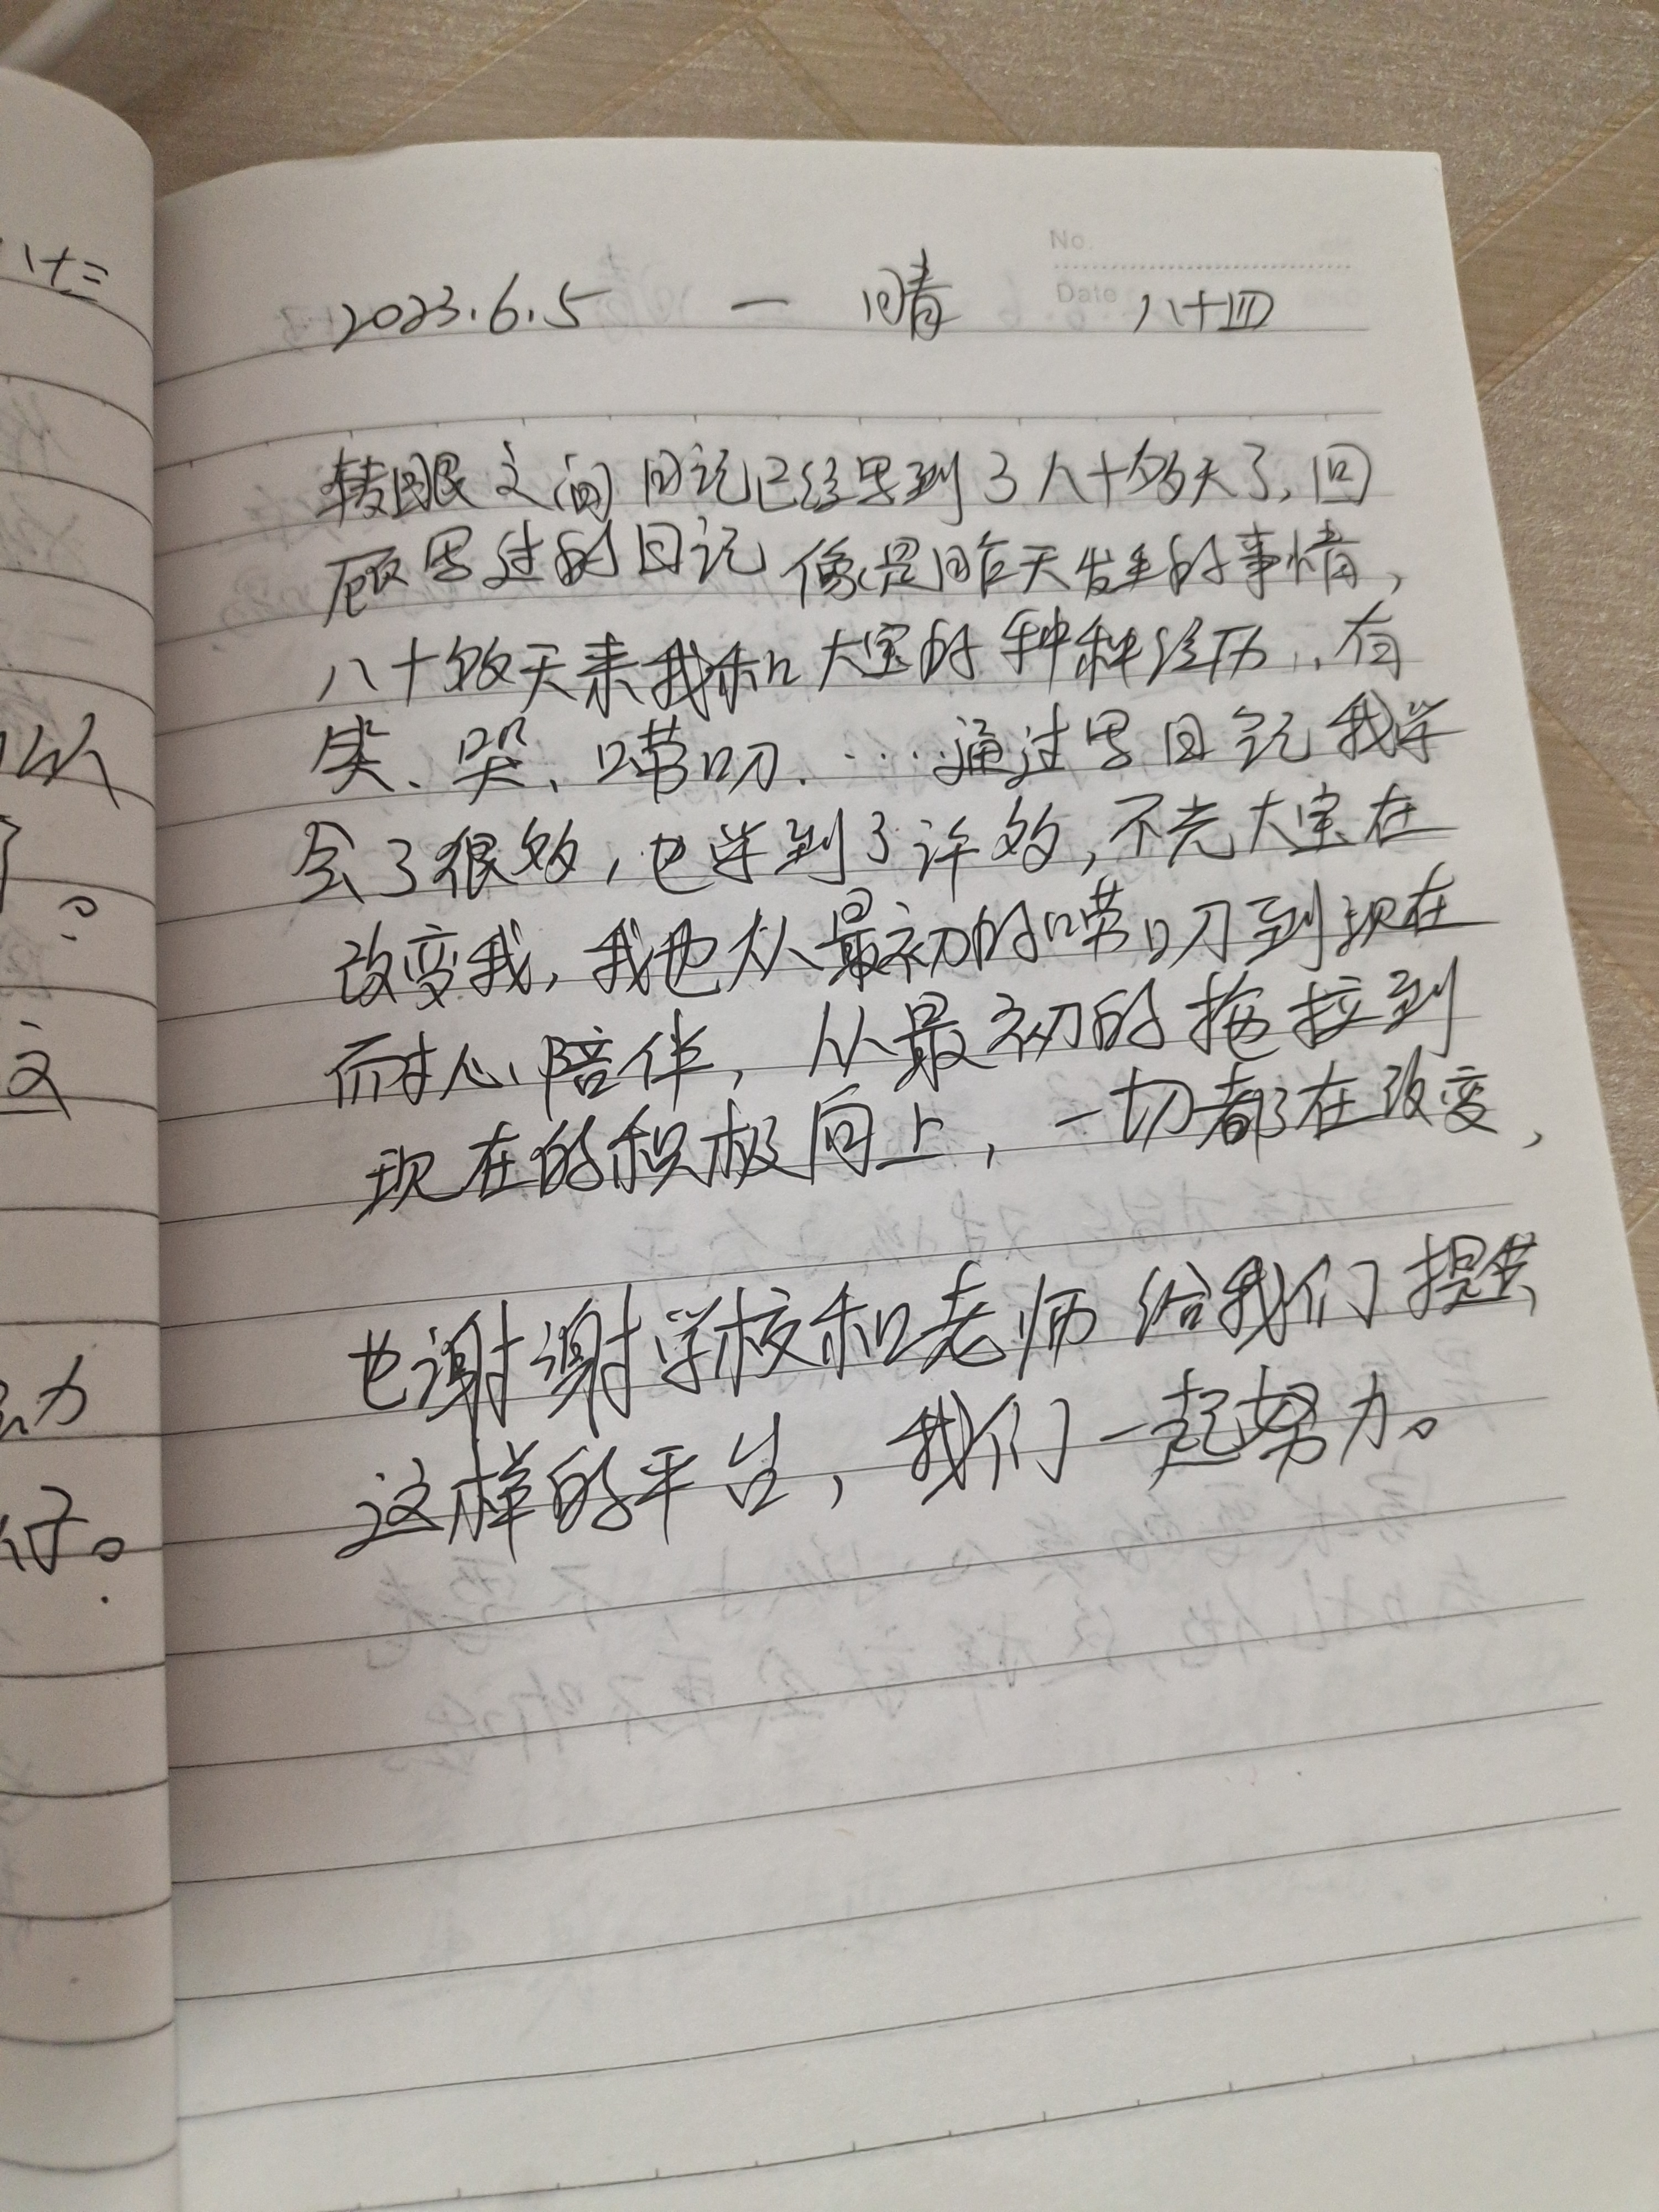 No.
Date
2023.6.5 一 晴 八十四
转眼之间日记已经写到了八十多天了,回
顾写过的日记像是昨天发生的事情,
八十多天来我和大宝的种种经历,有
笑、哭、唠叨……通过写日记我学
会了很多,也学到了许多,不光大宝在
改变我,我也从最初的唠叨到现在
耐心陪伴,从最初的拖拉到
现在的积极向上,一切都在改变,
也谢谢学校和老师给我们提供
这样的平台,我们一起努力。